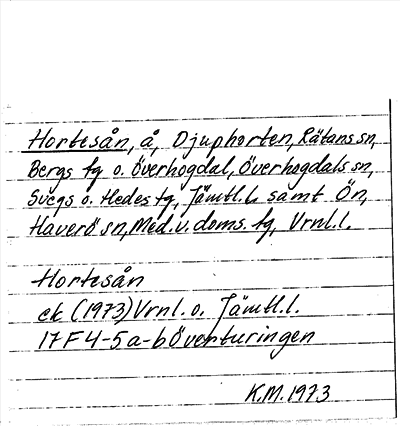 Hortesån, å, Djuphorten, Rätans sn,
Bergs tg o. Överhogdal, Överhogdals sn,
Svegs o. Hedes tg, Jämtl.l. samt Ön,
Haverö sn, Med.v.doms.tg, Vrnl.l.
Hortesån
ek (1973) Vrnl. o. Jämtl.l.
17F4-5a-b Överturingen
K.M. 1973